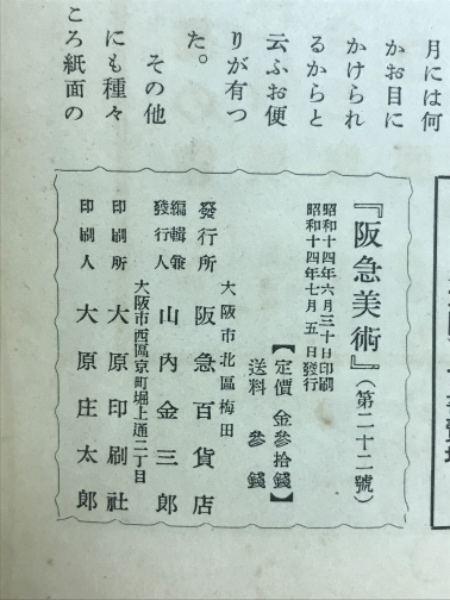 月には何
かお目に
かけられ
るからと
云ふお便
りが有つ
た。
その他
にも種々
ころ紙面の
『阪急美術』(第二十二號)
昭和十四年六月三十日印刷
昭和十四年七月五日發行
【定價 金參拾錢】
送料 參錢
大阪市北區梅田
發行所 阪急百貨店
編輯兼發行人 山內金三郎
大阪市西區京町堀上通二丁目
印刷所 大原印刷社
印刷人 大原庄太郎